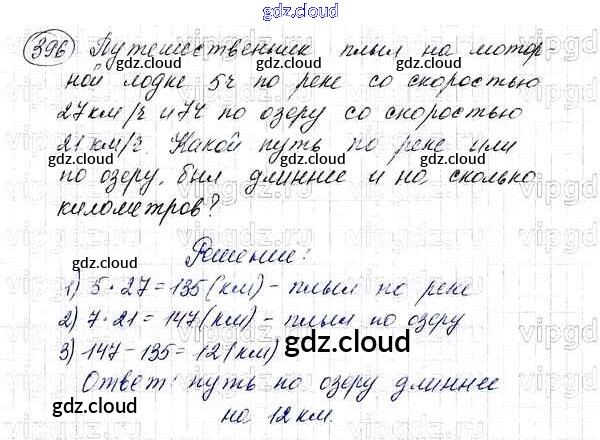 gdz.cloud
396 Путешественник плыл на мотор-
ной лодке 5ч по реке со скоростью
27 км/ч и 7ч по озеру со скоростью
21 км/ч. Какой путь по реке или
по озеру, был длиннее и на сколько
километров?
Решение:
1) 5 · 27 = 135 (км) - плыл по реке
2) 7 · 21 = 147 (км) - плыл по озеру
3) 147 - 135 = 12 (км)
Ответ: путь по озеру длиннее
на 12 км.
gdz.cloud